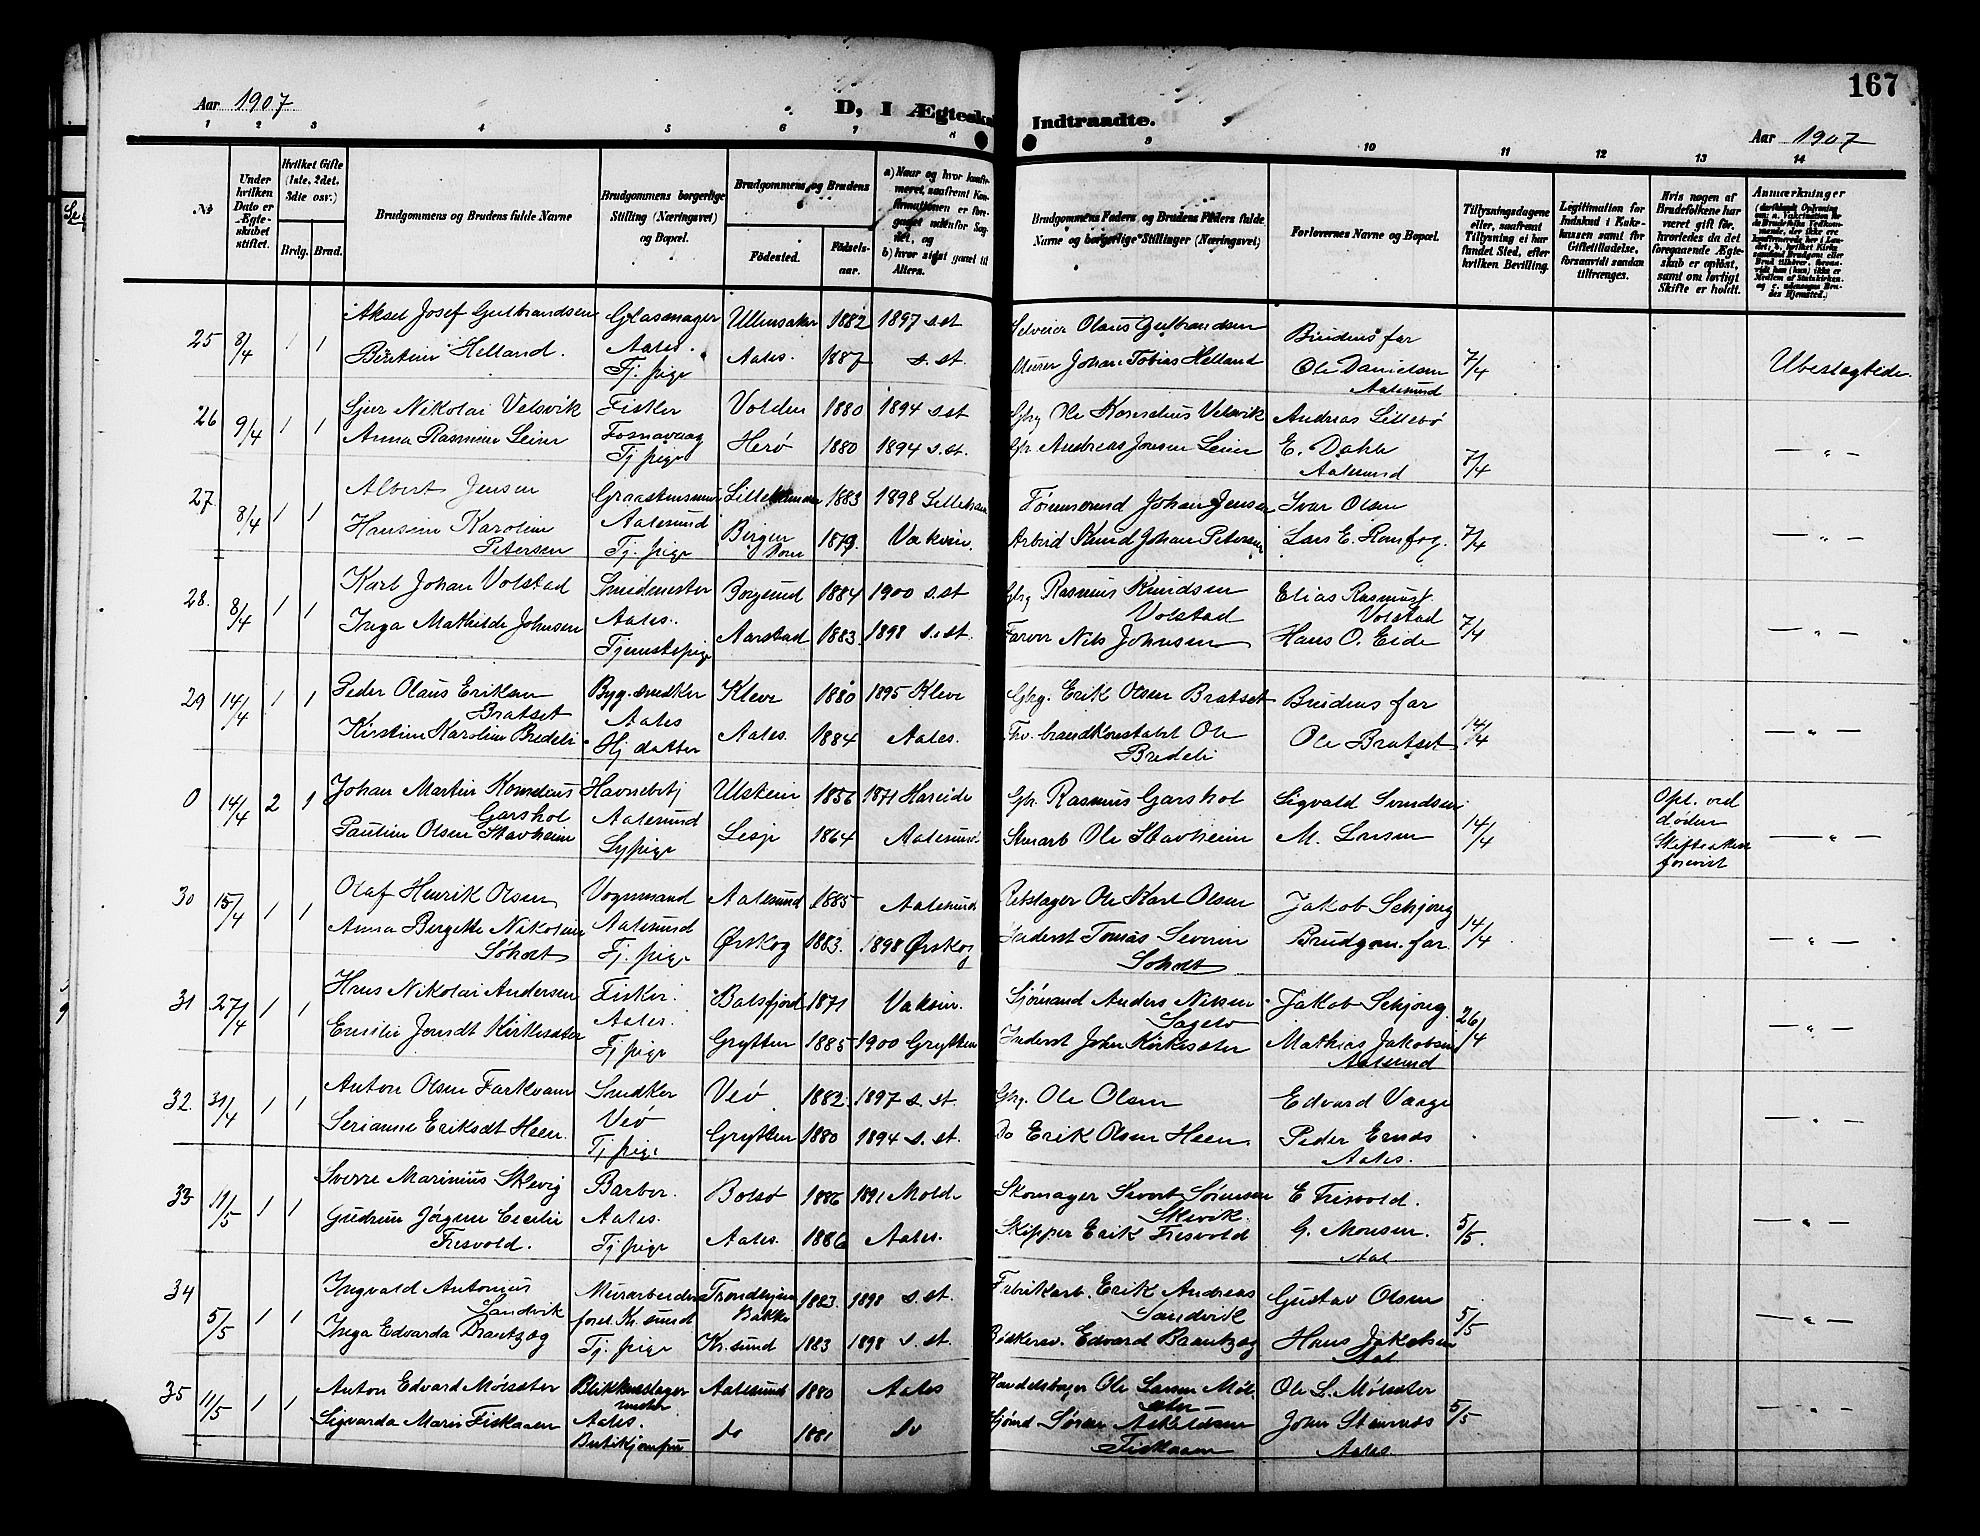 167
Aar 1907
D, I Ægteska
Indtraadte.
Aar 1907
1 2 3 4 5 6 7 8
9 10 11 12 13 14
№
Under hvilken Dato er Ægteskabet stiftet.
Hvilket Gifte (1ste, 2det, 3die osv.)
Brdg. Brud.
Brudgommens og Brudens fulde Navne
Brudgommens borgerlige Stilling (Næringsvei) og Bopæl.
Brudgommens og Brudens
Födested.
Födselsaar.
a) Naar og hvor konfirmeret, saafremt Konfirmationen er foregaaet udenfor Sognet, og
b) hvor sidst gaaet til Alters.
Brudgommens Faders og Brudens Faders fulde Navne og borgerlige Stillinger (Næringsvei)
Forlovernes Navne og Bopæl.
Tillysningsdagene eller, saafremt Tillysning ei har fundet Sted, efter hvilken Bevilling.
Legitimation for Indskud i Enkekassen samt for Giftetilladelse, forsaavidt saadan tiltrænges.
Hvis nogen af Brudefolkene har været gift för, hvorledes da det foregaaende Ægteskab er oplöst, samt om lovligt Skifte er holdt.
Anmærkninger
25 8/4 1 1 Aksel Josef Gulbrandsen Glasmager Ullensaker 1882 1897 s. st.
Helland. Aales. Aales. 1887 s. st.
Tj. pige
Olaus Gulbrandsen Brudens far
Murer Johan Tobias Helland Ole Danielsen 7/4 Ubeslægtede.
Aalesund
26 9/4 1 1 Sjur Nikolai Velsvik Fisker Volden 1880 1894 s. st.
Anna Rasmine Leine Fosnavaag Herø 1880 1894 s. st.
Tj. pige
Gbrg Ole Kornelius Velsvik Andreas Lillebö
Andreas Jensen Leine E. Dahle 7/4 — " —
Aalesund
27. 8/4 1 1 Albert Jensen 1883 1898
Hansine Karoline Aalesund 1879. Vaksin.
Petersen Tj. pige
Johan Jensen Ivar Olsen
Arbeid Johan Petersen Lars E. 7/4 — " —
28. 8/4 1 1 Karl Johan Volstad Smedmester Borgund 1884 1900 s. st
Inga Mathilde Johnsen Aales. Aarstad 1883. 1898 s. st.
Tjenestepige
Gbrg Rasmus Knudsen Elias Rasmus.
Volstad Volstad
Farver Nils Johnsen Hans O. Eide 7/4 — " —
29 14/4 1 1 Peder Olaus Eriksen Byg. snedker Kleve 1880 1895 Kleve
Bratset Aales
Kirstine Karoline Bredeli Hj. datter Aales. 1884 Aales.
Gbrg. Erik Olsen Bratset Brudens far
Fhv. brandkonstabel Ole Ole Bratset 14/4 — " —
Bredeli
0 14/4 2 1 Johan Martin Kornelius Havnebetj Ulstein 1856 1871 Hareide
Garshol Aalesund
Pauline Olsen Stavheim Sypige Lesje 1864 Aalesund
Rasmus Garshol Sigvald Svendsen Opl. ved
Ole Stavheim M. Larsen 14/4 døden — " —
Skifteattest
forevist
30 15/4 1 1 Olaf Henrik Olsen Vognmand Aalesund 1885 Aalesund
Anna Bergette Nikoline Aalesund
Søholt Tj. pige Ørskog 1883. 1898 Ørskog
Rebslager Ole Karl Olsen Jakob Schjong 14/4
Inderst Tomas Severin Brudgom. far. — " —
Søholt
31 27/4 1 1 Hans Nikolai Andersen Fisker. Balsfjord 1871 Vaksin.
Emilie Jonsdt Kirkesæter Aales. Grytten 1885 1900 Grytten
Tj. pige
Sjømand Anders Nilsen Jakob Schjong. 26/4
Inderst John Kirkesæter Mathias Jakobsen — " —
Aalesund
32. 31/4 1 1 Anton Olsen Farkvam Snedker Veø 1882. 1897 s. st.
Serianne Eriksdt Heen. Veø Grytten 1880 1894 s. st.
Tj. pige
Gbrg. Ole Olsen Edvard Vaage
Do Erik Olsen Heen. Peder — " —
Aales.
33 11/5 1 1 Sverre Marinius Skevig Barber. Bolsø 1886 1891 Molde
Gudrun Jørgine Cecilie Aales. Aales. 1886 Aales.
Fresvold. Tj. pige
Skomager Sivert Sørensen E Fresvold.
Skevik. G. Monsen. 5/5.
Skipper Erik Fresvold Aal — " —
34 5/5 1 1 Ingvald Antonius Murarbeider Trondhjem 1883. 1898 s. st.
Sandvik forel. Kr. sund Bakke
Inga Edvarda Brantzæg Tj. pige Kr. sund 1883 1898 s. st.
Fabrikarb. Erik Andreas Gustav Olsen
Sandvik 5/5
Edvard Brantzæg Hans Jakobsen — " —
Aal
35 11/5 1 1 Anton Edvard Mölsæter Blikkenslager Aalesund 1880 Aales
mester
Sigvarda Marie Fiskaaen Aales. do 1881 do
Butikjomfru
Handelsborger Ole Larsen Möl Ole L. Mölsæter
sæter
Sjømd Søren Fiskaaen John 5/5 — " —
Aales.